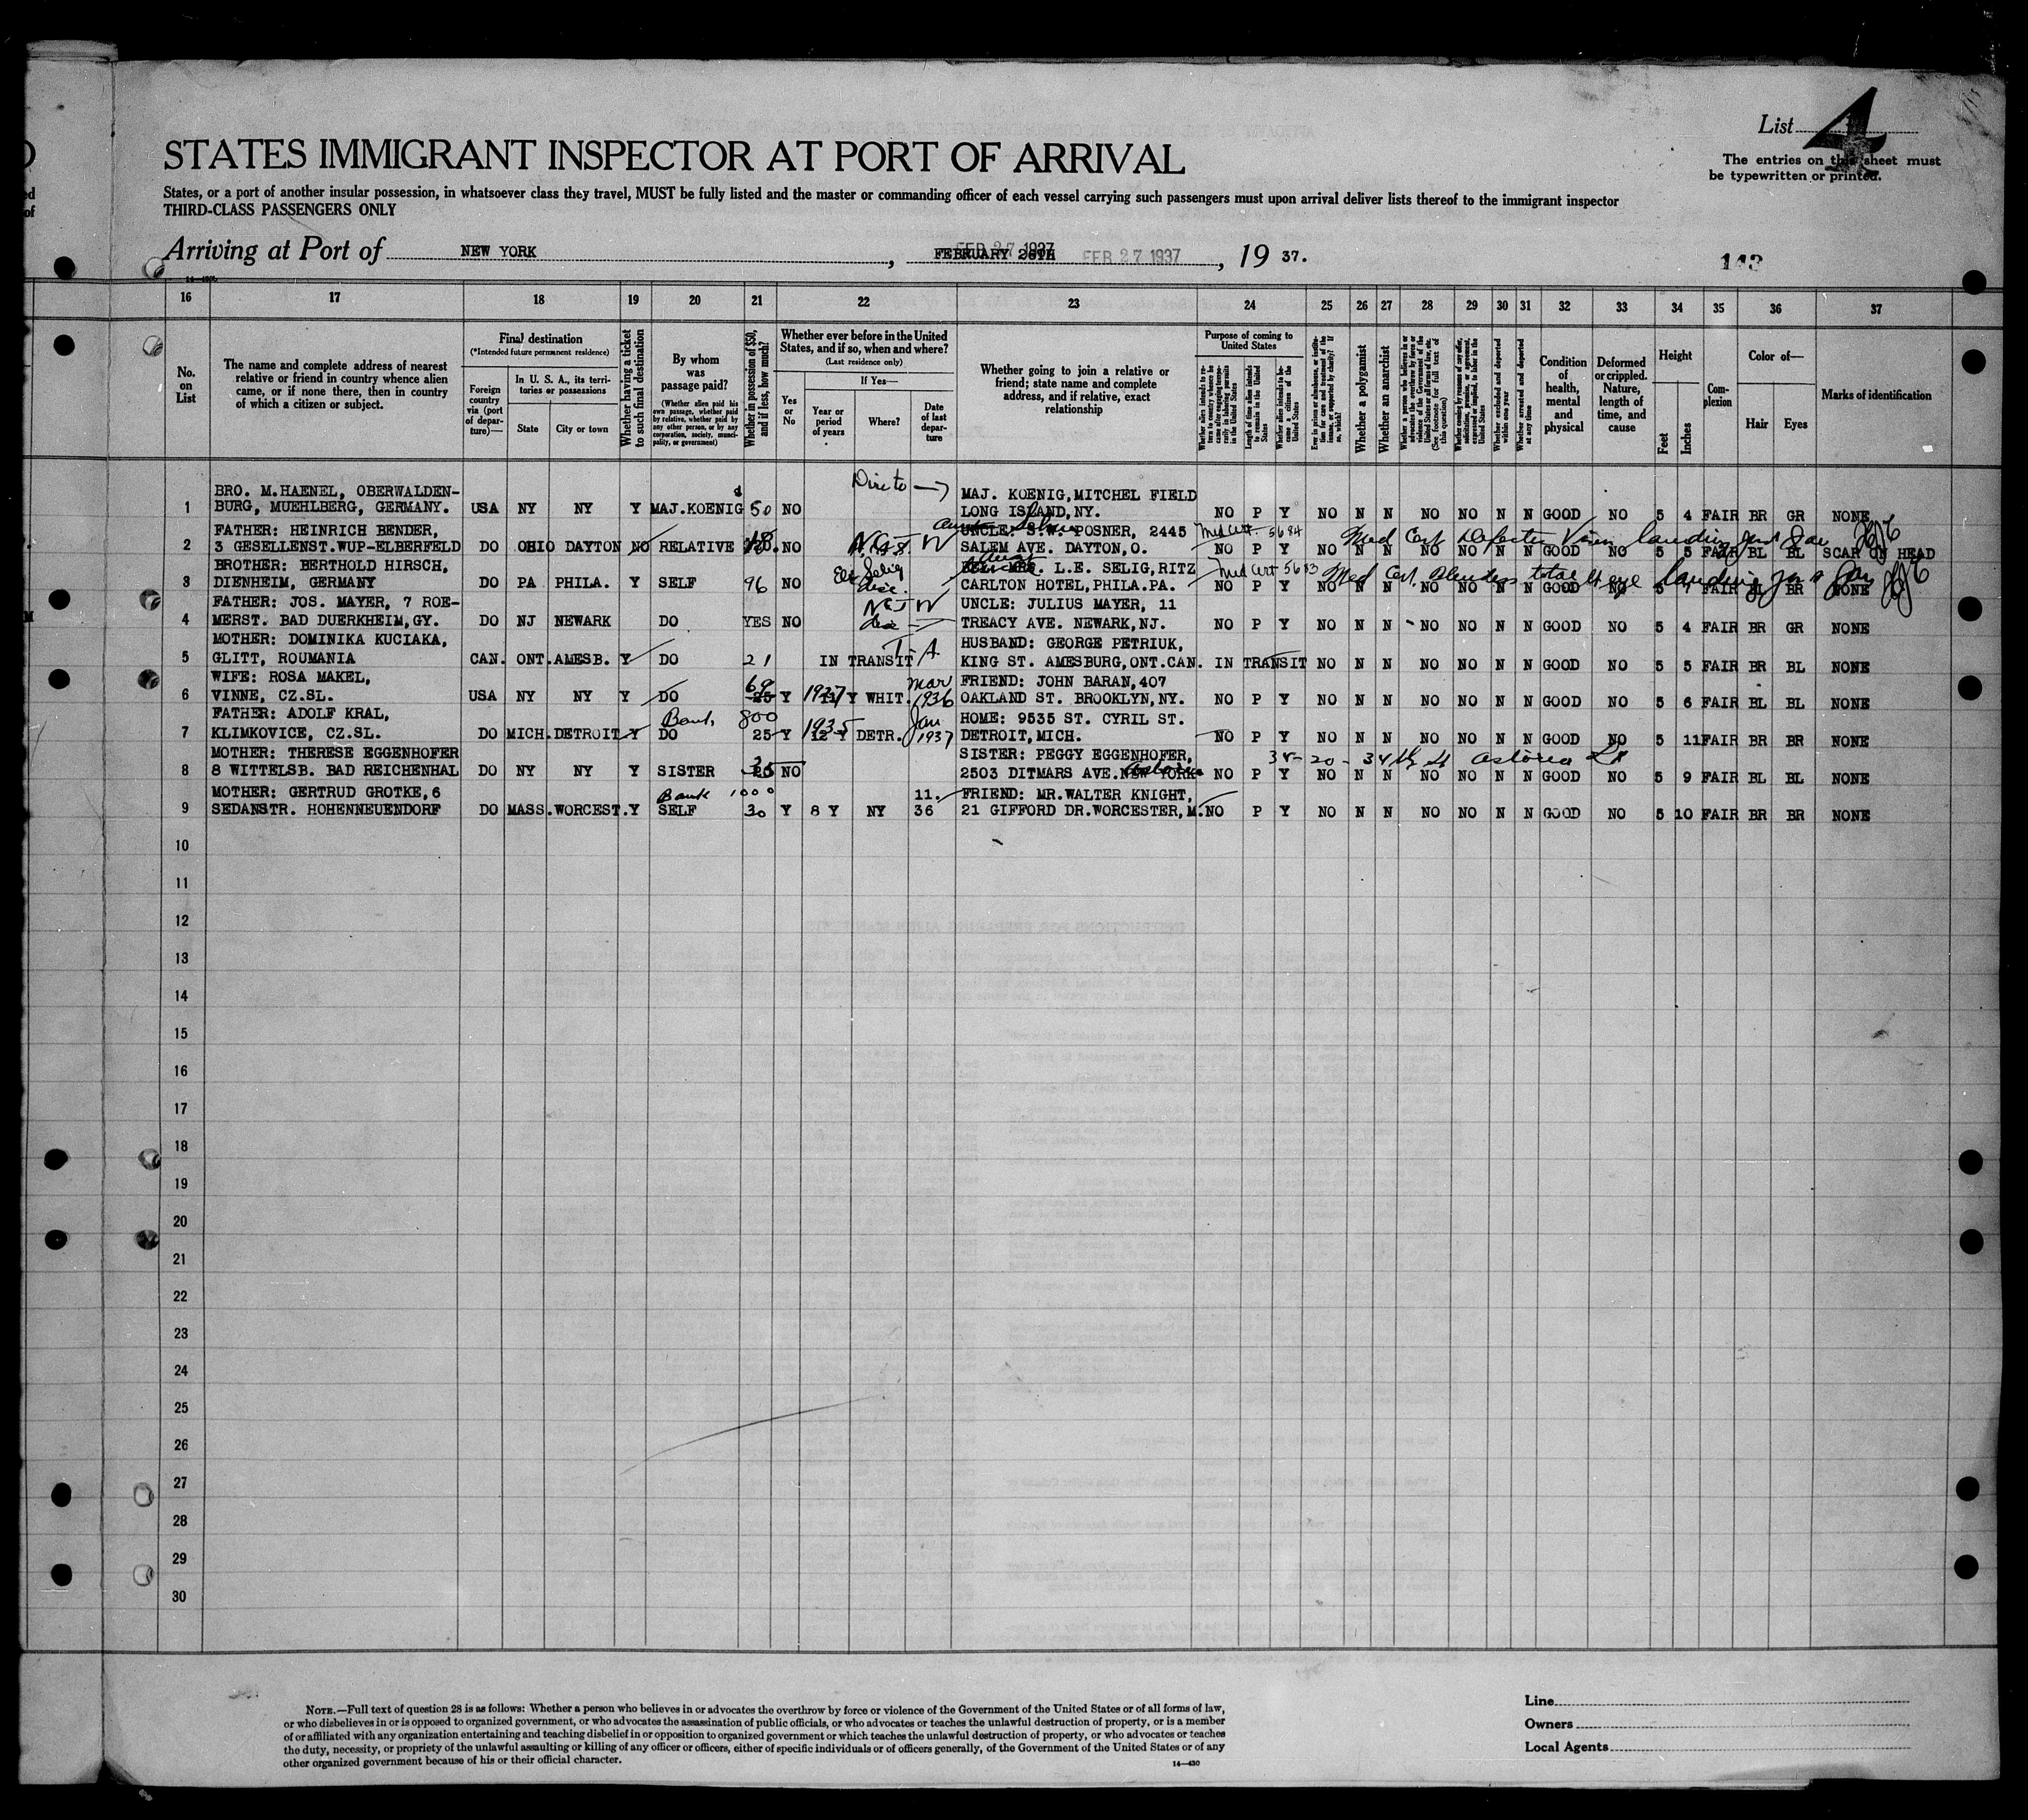 List 4
The entries on this sheet must
be typewritten or printed.
STATES IMMIGRANT INSPECTOR AT PORT OF ARRIVAL
States, or a port of another insular possession, in whatsoever class they travel, MUST be fully listed and the master or commanding officer of each vessel carrying such passengers must upon arrival deliver lists thereof to the immigrant inspector
THIRD-CLASS PASSENGERS ONLY
Arriving at Port of NEW YORK, FEBRUARY FEB 27 1937 FEB 27 1937, 19 37.
143
16 17 18 19 20 21 22 23 24 25 26 27 28 29 30 31 32 33 34 35 36 37
No. on List
The name and complete address of nearest relative or friend in country whence alien came, or if none there, then in country of which a citizen or subject.
Final destination
(*Intended future permanent residence)
Foreign country via (port of departure)—
In U. S. A., its territories or possessions
State
City or town
Whether having a ticket to such final destination
By whom was passage paid?
(Whether alien paid his own passage, whether paid by relative, whether paid by any other person, or by any corporation, society, municipality, or government)
Whether in possession of $50, and if less, how much?
Whether ever before in the United States, and if so, when and where?
(Last residence only)
Yes or No
If Yes—
Year or period of years
Where?
Date of last departure
Whether going to join a relative or friend; state name and complete address, and if relative, exact relationship
Purpose of coming to United States
Length of time alien intends to remain in the United States
Whether alien intends to become a citizen of the United States
Whether a polygamist
Whether an anarchist
Whether excluded and deported within one year
Whether arrested and deported at any time
Condition of health, mental and physical
Deformed or crippled. Nature, length of time, and cause
Height
Feet
Inches
Complexion
Color of—
Hair
Eyes
Marks of identification
Direto
BRO. M.HAENEL, OBERWALDEN- MAJ. KOENIG,MITCHEL FIELD
1 BURG, MUEHLBERG, GERMANY. USA NY NY Y MAJ.KOENIG 50 NO LONG ISLAND,NY. NO P Y NO N N NO NO N N GOOD NO 5 4 FAIR BR GR NONE
FATHER: HEINRICH BENDER, UNCLE: S.W. POSNER, 2445 Med Cert. 5684 Med Cert Defective Vision landing
2 3 GESELLENST.WUP-ELBERFELD DO OHIO DAYTON NO RELATIVE NO SALEM AVE. DAYTON,O. NO P Y NO N N NO NO N N GOOD NO 5 5 FAIR BL BL SCAR ON HEAD
BROTHER: BERTHOLD HIRSCH, Selig L.E. SELIG,RITZ Med Cert Med Cert Blindness total eye landing
3 DIENHEIM, GERMANY DO PA PHILA. Y SELF 96 NO CARLTON HOTEL,PHILA.PA. NO P Y NO N N NO NO N N GOOD NO 5 7 FAIR BL BR NONE
FATHER: JOS. MAYER, 7 ROE- UNCLE: JULIUS MAYER, 11
4 MERST. BAD DUERKHEIM,GY. DO NJ NEWARK DO YES NO TREACY AVE. NEWARK,NJ. NO P Y NO N N NO NO N N GOOD NO 5 4 FAIR BR GR NONE
MOTHER: DOMINIKA KUCIAKA, T.A. HUSBAND: GEORGE PETRIUK,
5 GLITT, ROUMANIA CAN. ONT.AMESB. Y DO 21 IN TRANSIT KING ST. AMESBURG,ONT.CAN. IN TRANSIT NO N N NO NO N N GOOD NO 5 5 FAIR BR BL NONE
WIFE: ROSA MAKEL, 69 Mar FRIEND: JOHN BARAN,407
6 VINNE, CZ.SL. USA NY NY Y DO 25 Y 1927 Y WHIT. 1936 OAKLAND ST. BROOKLYN,NY. NO P Y NO N N NO NO N N GOOD NO 5 6 FAIR BL BL NONE
FATHER: ADOLF KRAL, Bank 800 1935 Jan HOME: 9535 ST. CYRIL ST.
7 KLIMKOVICE, CZ.SL. DO MICH.DETROIT Y DO 25 Y 12 Y DETR. 1937 DETROIT,MICH. NO P Y NO N N NO NO N N GOOD NO 5 11 FAIR BR BR NONE
MOTHER: THERESE EGGENHOFER SISTER: PEGGY EGGENHOFER, 35-20-34th St Astoria LI
8 8 WITTELSB. BAD REICHENHAL DO NY NY Y SISTER NO 2503 DITMARS AVE.NEW YORK Astoria NO P Y NO N N NO NO N N GOOD NO 5 9 FAIR BL BL NONE
MOTHER: GERTRUD GROTKE,6 Bank 1000 11. FRIEND: MR.WALTER KNIGHT,
9 SEDANSTR. HOHENNEUENDORF DO MASS.WORCEST.Y SELF 30 Y 8 Y NY 36 21 GIFFORD DR.WORCESTER,M. NO P Y NO N N NO NO N N GOOD NO 5 10 FAIR BR BR NONE
10
11
12
13
14
15
16
17
18
19
20
21
22
23
24
25
26
27
28
29
30
NOTE.—Full text of question 28 is as follows: Whether a person who believes in or advocates the overthrow by force or violence of the Government of the United States or of all forms of law,
or who disbelieves in or is opposed to organized government, or who advocates the assassination of public officials, or who advocates or teaches the unlawful destruction of property, or is a member
of or affiliated with any organization entertaining and teaching disbelief in or opposition to organized government or which teaches the unlawful destruction of property, or who advocates or teaches
the duty, necessity, or propriety of the unlawful assaulting or killing of any officer or officers, either of specific individuals or of officers generally, of the Government of the United States or of any
other organized government because of his or their official character.
14—430
Line
Owners
Local Agents